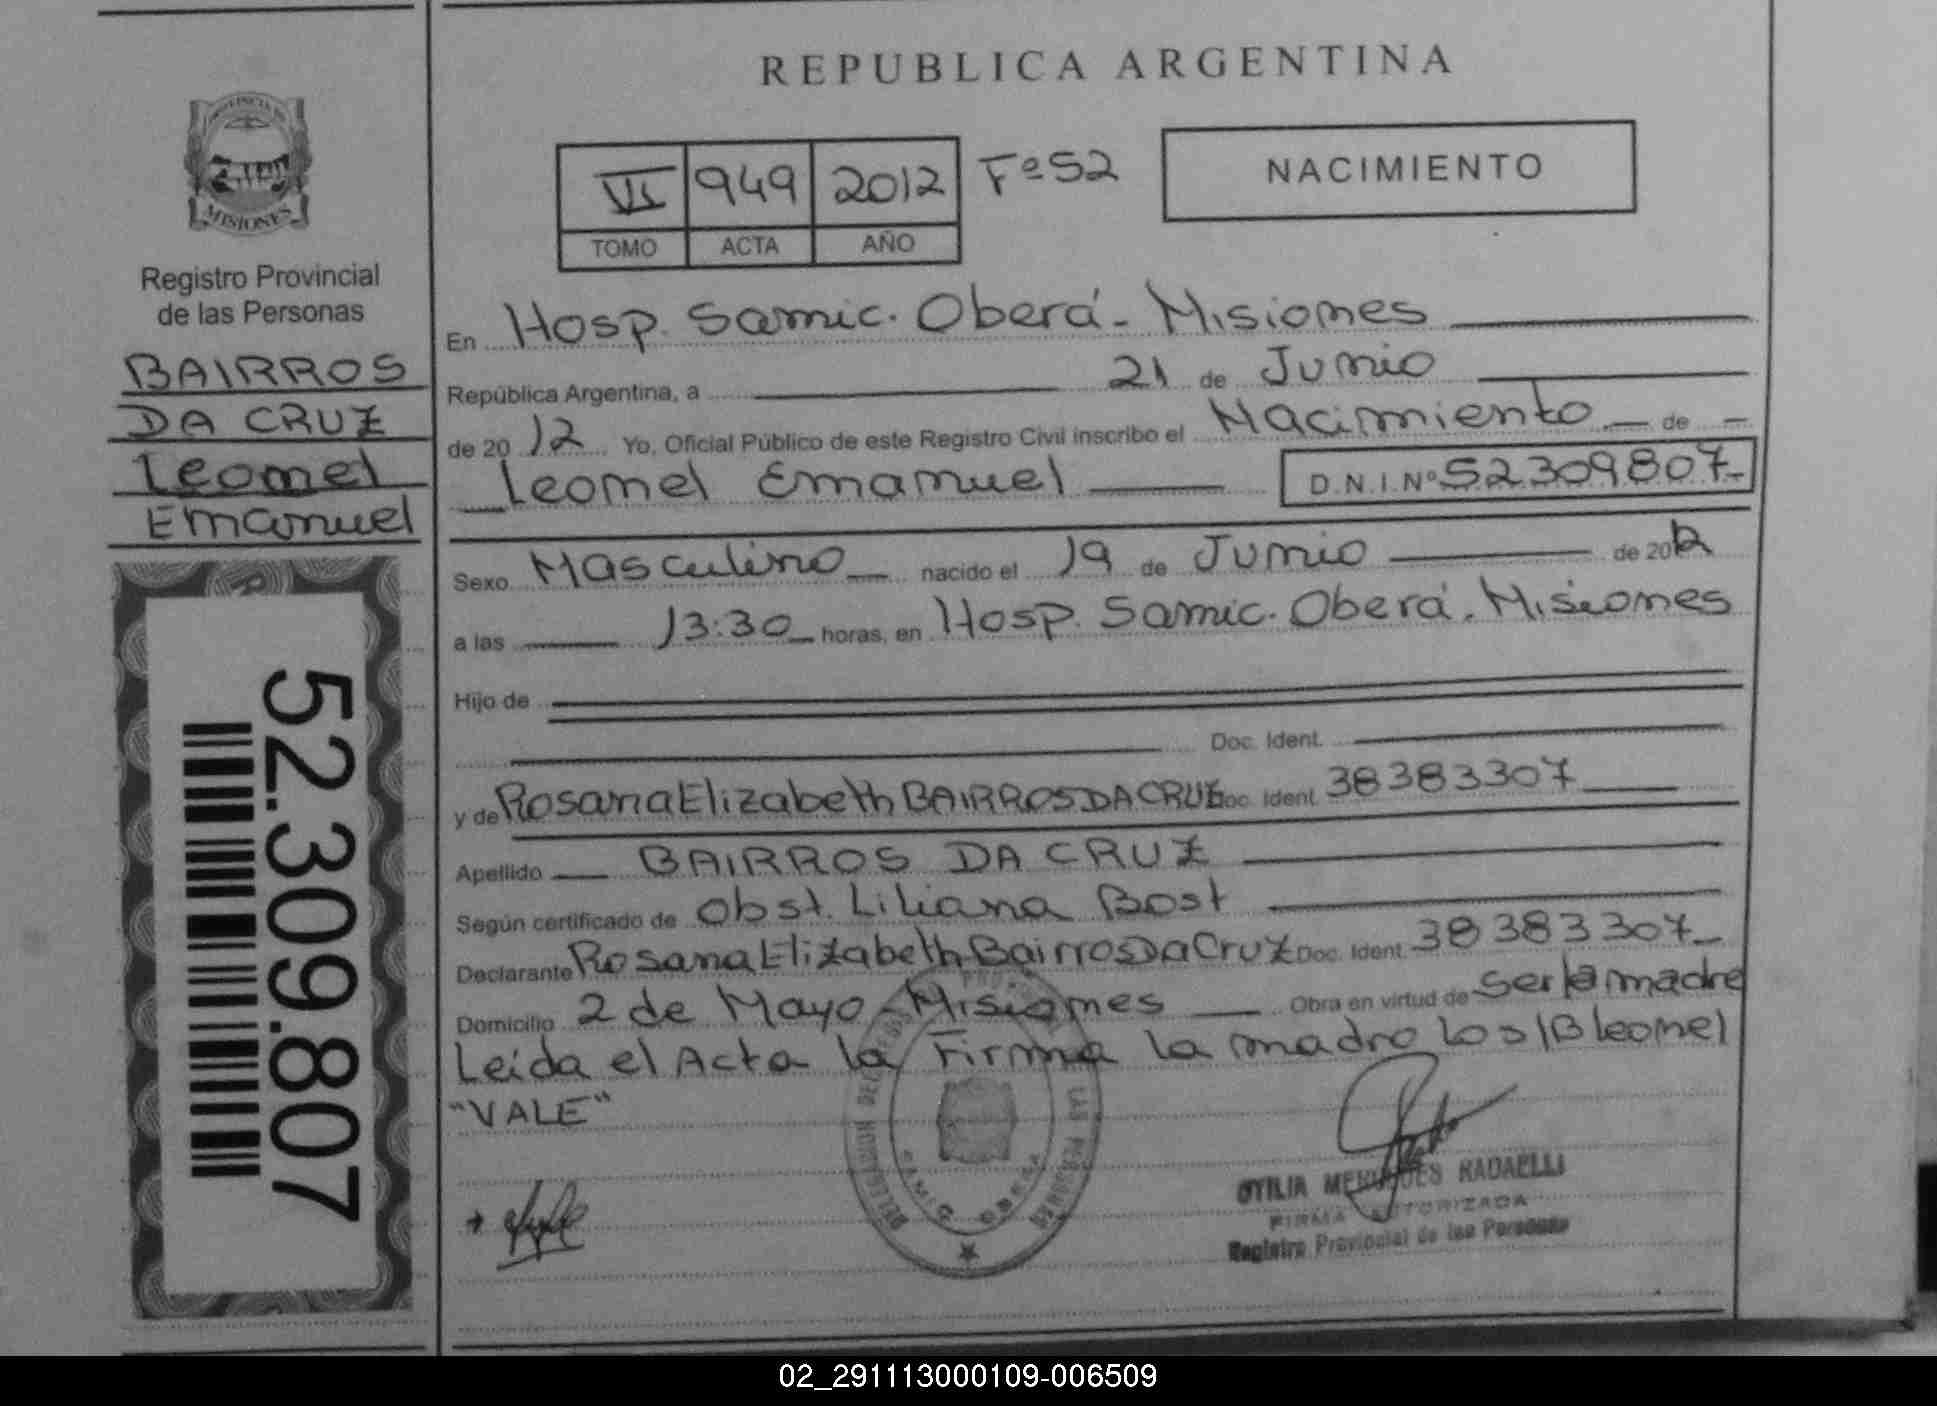 REPUBLICA ARGENTINA
PROVINCIA DE
MISIONES
Registro Provincial
de las Personas
BAIRROS
DA CRUZ
Leonel
Emanuel
52.309.807
VI 949 2012 Fº 52
TOMO ACTA AÑO
NACIMIENTO
En Hosp. Samic. Oberá - Misiones
República Argentina, a 21 de Junio
de 20 12 Yo, Oficial Público de este Registro Civil inscribo el Nacimiento de
Leonel Emanuel D.N.I.Nº 52309807
Sexo Masculino nacido el 19 de Junio de 2012
a las 13:30 horas, en Hosp. Samic. Oberá. Misiones
Hijo de
Doc. Ident.
y de Rosana Elizabeth BAIRROS DA CRUZ Doc. Ident. 38383307
Apellido BAIRROS DA CRUZ
Según certificado de Obst. Liliana Bost
Declarante Rosana Elizabeth Bairros Da Cruz Doc. Ident. 38383307
Domicilio 2 de Mayo - Misiones Obra en virtud de ser la madre
Leída el Acta la Firma la madre Lo s/B leonel
"VALE"
LAS PERSONAS
SAMIC OBERA
FIRMA AUTORIZADA
Registro Provincial de las Personas
02_291113000109-006509